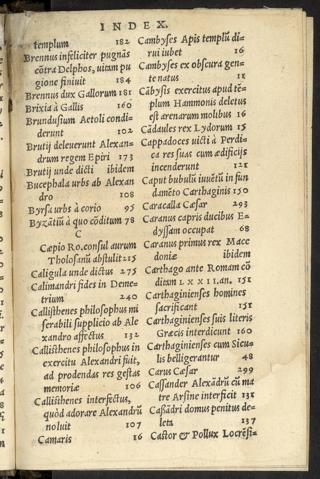 INDEX.
templum 182
Brennus infeliciter pugnās
cōtra Delphos, uitam pu
gione finiuit 184
Brennus dux Gallorum 181
Brixia à Gallis 160
Brundusium Aetoli condi-
derunt 102
Brutij deleuerunt Alexan-
drum regem Epiri 173
Brutij unde dicti ibidem
Bucephala urbs ab Alexan
dro 108
Byrsa urbs à corio 95
Byzātiū à quo cōditum 78
C
Cæpio Ro. consul aurum
Tholosanū abstulit 215
Caligula unde dictus 275
Calimandri fides in Deme-
trium 240
Callisthenes philosophus mi
serabili supplicio ab Ale
xandro affectus 132
Callisthenes philosophus in
exercitu Alexandri fuit,
ad prodendas res gestas
memoriæ 106
Callisthenes interfectus,
quòd adorare Alexandrū
noluit 107
Camaris 16
Cambyses Apis templū di-
rui iubet 16
Cambyses ex obscura gen-
te natus 11
Cābysis exercitus apud tē-
plum Hammonis deletus
est arenarum molibus 16
Cādaules rex Lydorum 15
Cappadoces uicti à Perdi-
ca res suas cum ædificijs
incenderunt 121
Caput bubulū inuētū in fun
damēto Carthaginis 150
Caracalla Cæsar 293
Caranus capris ducibus E-
dyssam occupat 68
Caranus primus rex Mace
doniæ ibidem
Carthago ante Romam cō
ditam LXXII. an. 151
Carthaginienses homines
sacrificant 151
Carthaginienses suis literis
Græcis interdicunt 160
Carthaginienses cum Sicu-
lis belligerantur 48
Carus Cæsar 299
Cassander Alexādrū cū ma
tre Arsine interficit 131
Cassādri domus penitus de-
leta 137
Castor & Pollux Locrēsi-